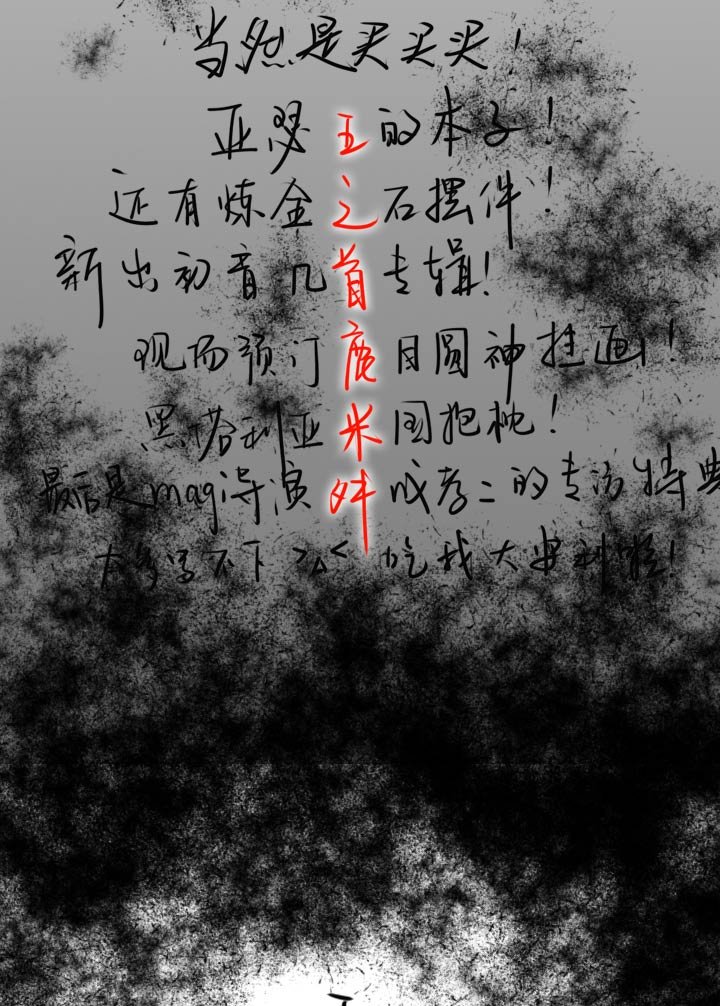 当然是买买买！
亚瑟王的本子！
还有炼金之石摆件！
新出初音几首专辑！
现场预订鹿目圆神挂画！
黑塔利亚米国抱枕！
最后是mag导演 成孝二的专访特典
太多写不下 >△< 吃我大安利啦！